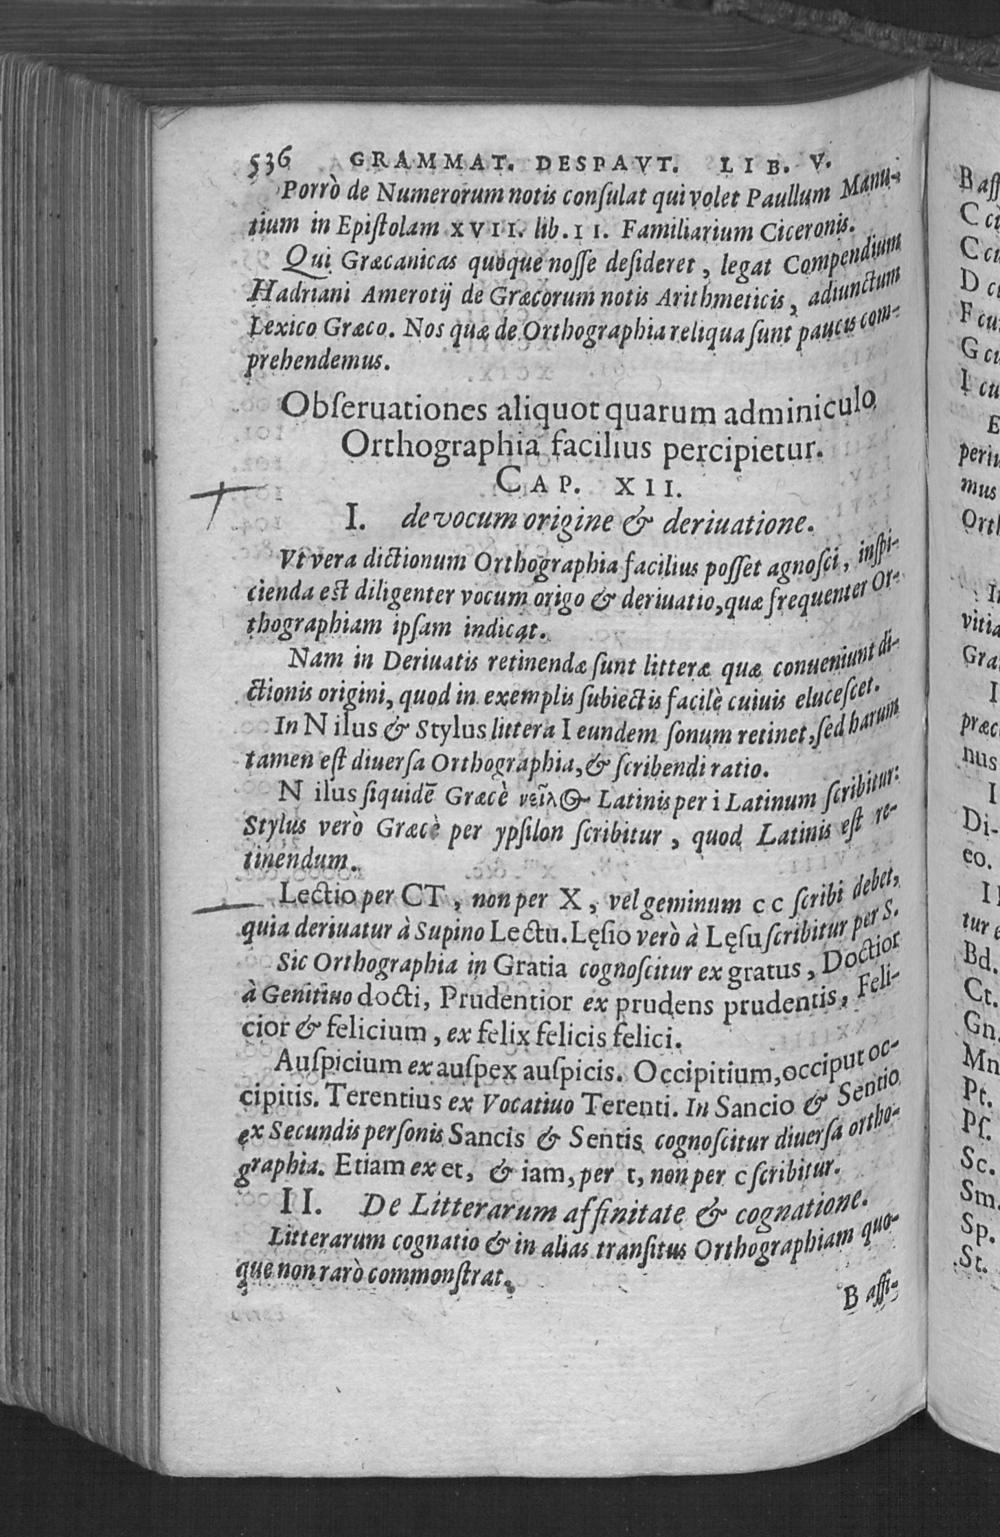 536 GRAMMAT. DESPAVT. LIB. V.
Porrò de Numerorum notis conſulat qui volet Paullum Manu-
tium in Epiſtolam XVII. lib. II. Familiarium Ciceronis.
Qui Græcanicas quoque noſſe deſideret, legat Compendium
Hadriani Amerotij de Græcorum notis Arithmeticis, adiunctum
Lexico Græco. Nos quæ de Orthographia reliqua ſunt paucis com-
prehendemus.
Obſeruationes aliquot quarum adminiculo
Orthographia facilius percipietur.
CAP. XII.
I. de vocum origine & deriuatione.
Vt vera dictionum Orthographia facilius poſſet agnoſci, inſpi-
cienda eſt diligenter vocum origo & deriuatio, quæ frequenter Or-
thographiam ipſam indicat.
Nam in Deriuatis retinendæ ſunt litteræ quæ conueniunt di-
ctionis origini, quod in exemplis ſubiectis facilè cuiuis eluceſcet.
In Nilus & Stylus littera I eundem ſonum retinet, ſed harum
tamen eſt diuerſa Orthographia, & ſcribendi ratio.
Nilus ſiquidē Græcè νεῖλος Latinis per i Latinum ſcribitur:
Stylus verò Græcè per ypſilon ſcribitur, quod Latinis eſt re-
tinendum.
Lectio per CT, non per X, vel geminum cc ſcribi debet,
quia deriuatur à Supino Lectu. Lęſio verò à Lęſu ſcribitur per S.
Sic Orthographia in Gratia cognoſcitur ex gratus, Doctior
à Genitiuo docti, Prudentior ex prudens prudentis, Feli-
cior & felicium, ex felix felicis felici.
Auſpicium ex auſpex auſpicis. Occipitium, occiput oc-
cipitis. Terentius ex Vocatiuo Terenti. In Sancio & Sentio
ex Secundis perſonis Sancis & Sentis cognoſcitur diuerſa ortho-
graphia. Etiam ex et, & iam, per t, non per c ſcribitur.
II. De Litterarum affinitate & cognatione.
Litterarum cognatio & in alias tranſitus Orthographiam quo-
que non rarò commonſtrat.
B affi-
B aff
C
C
D
F
G
I cu
E
mus
Orth
vitia
Gra
I
præc
nus
I
Di-
eo.
tur
Bd.
Ct.
Gn.
Mn
Pt.
Pſ.
Sc.
Sm.
Sp.
St.